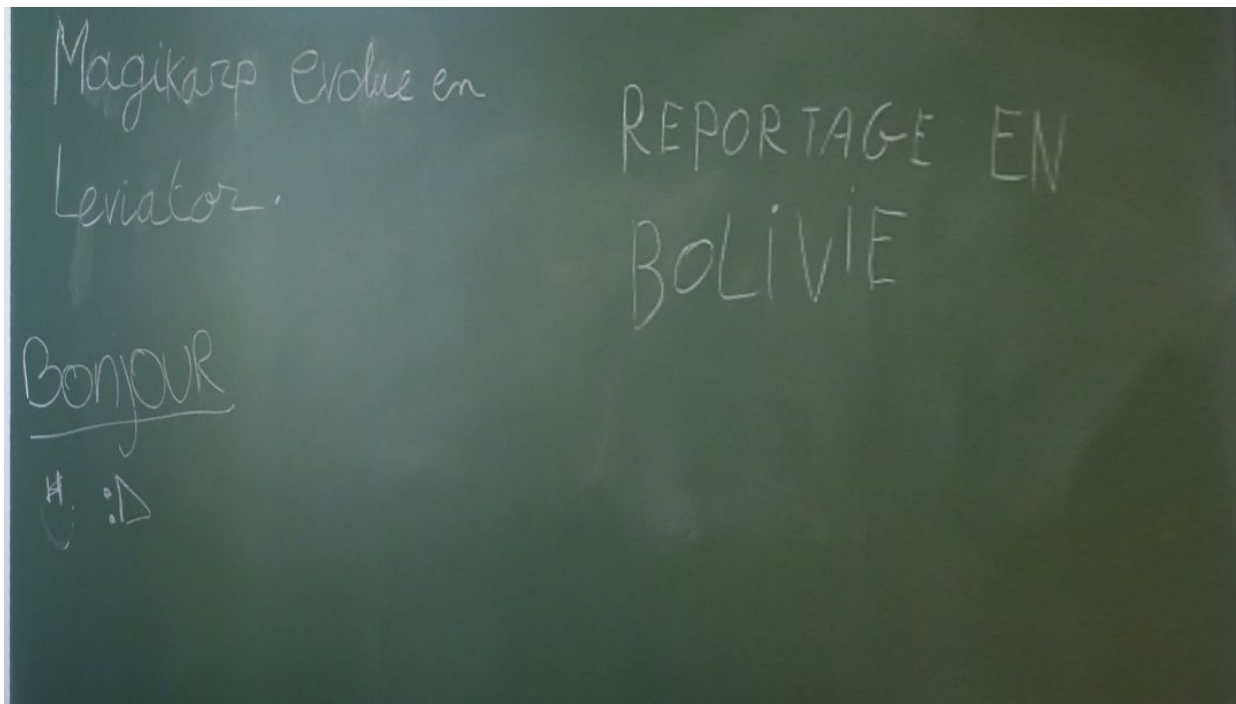 Magikarp evolue en
Leviator.
BonjOUR
:D
REPORTAGE EN
BOLiViE